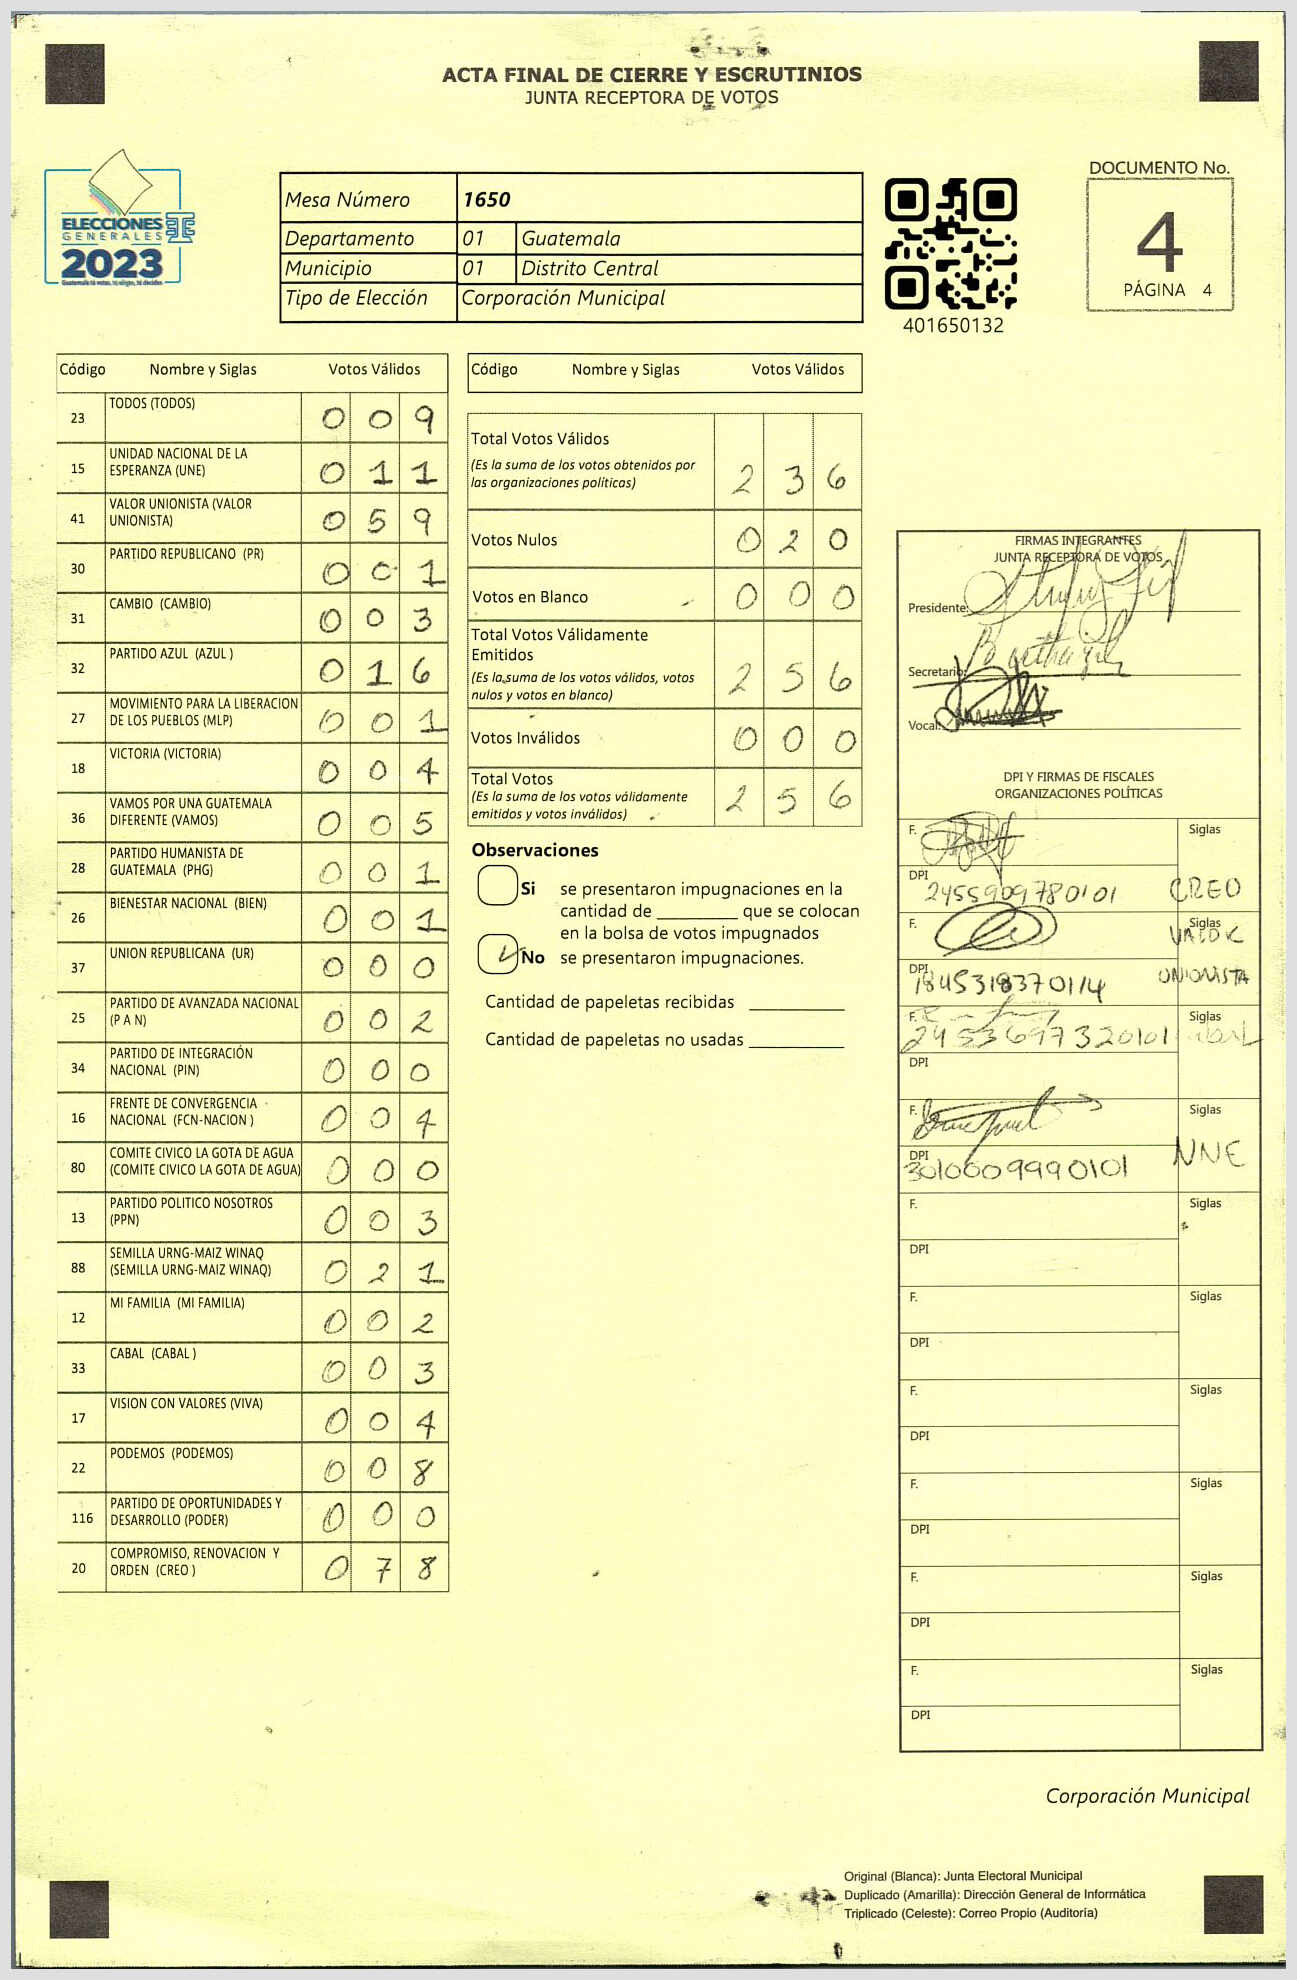 ACTA FINAL DE CIERRE Y ESCRUTINIOS
JUNTA RECEPTORA DE VOTOS
ELECCIONES
GENERALES
2023
Mesa Número 1650
Departamento 01 Guatemala
Municipio 01 Distrito Central
Tipo de Elección Corporación Municipal
401650132
DOCUMENTO No.
4
PÁGINA 4
Código Nombre y Siglas Votos Válidos
23 TODOS (TODOS) 0 0 9
15 UNIDAD NACIONAL DE LA
ESPERANZA (UNE) 0 1 1
41 VALOR UNIONISTA (VALOR
UNIONISTA) 0 5 9
30 PARTIDO REPUBLICANO (PR) 0 0 1
31 CAMBIO (CAMBIO) 0 0 3
32 PARTIDO AZUL (AZUL ) 0 1 6
27 MOVIMIENTO PARA LA LIBERACION
DE LOS PUEBLOS (MLP) 0 0 1
18 VICTORIA (VICTORIA) 0 0 4
36 VAMOS POR UNA GUATEMALA
DIFERENTE (VAMOS) 0 0 5
28 PARTIDO HUMANISTA DE
GUATEMALA (PHG) 0 0 1
26 BIENESTAR NACIONAL (BIEN) 0 0 1
37 UNION REPUBLICANA (UR) 0 0 0
25 PARTIDO DE AVANZADA NACIONAL
(P A N) 0 0 2
34 PARTIDO DE INTEGRACIÓN
NACIONAL (PIN) 0 0 0
16 FRENTE DE CONVERGENCIA
NACIONAL (FCN-NACION ) 0 0 4
80 COMITE CIVICO LA GOTA DE AGUA
(COMITE CIVICO LA GOTA DE AGUA) 0 0 0
13 PARTIDO POLITICO NOSOTROS
(PPN) 0 0 3
88 SEMILLA URNG-MAIZ WINAQ
(SEMILLA URNG-MAIZ WINAQ) 0 2 1
12 MI FAMILIA (MI FAMILIA) 0 0 2
33 CABAL (CABAL ) 0 0 3
17 VISION CON VALORES (VIVA) 0 0 4
22 PODEMOS (PODEMOS) 0 0 8
116 PARTIDO DE OPORTUNIDADES Y
DESARROLLO (PODER) 0 0 0
20 COMPROMISO, RENOVACION Y
ORDEN (CREO ) 0 7 8
Código Nombre y Siglas Votos Válidos
Total Votos Válidos
(Es la suma de los votos obtenidos por
las organizaciones políticas) 2 3 6
Votos Nulos 0 2 0
Votos en Blanco 0 0 0
Total Votos Válidamente
Emitidos
(Es la suma de los votos válidos, votos
nulos y votos en blanco) 2 5 6
Votos Inválidos 0 0 0
Total Votos
(Es la suma de los votos válidamente
emitidos y votos inválidos) 2 5 6
Observaciones
Si se presentaron impugnaciones en la
cantidad de ________ que se colocan
en la bolsa de votos impugnados
No se presentaron impugnaciones.
Cantidad de papeletas recibidas
Cantidad de papeletas no usadas
FIRMAS INTEGRANTES
JUNTA RECEPTORA DE VOTOS
Presidente:
Secretario:
Vocal:
DPI Y FIRMAS DE FISCALES
ORGANIZACIONES POLÍTICAS
F. Siglas
DPI
2455909780101 CREO
F. Siglas
VALOR
DPI
1845318370114 UNIONISTA
F. Siglas
2453697320101
DPI
F. Siglas
DPI
3010009990101 NNE
F. Siglas
DPI
F. Siglas
DPI
F. Siglas
DPI
F. Siglas
DPI
F. Siglas
DPI
F. Siglas
DPI
Corporación Municipal
Original (Blanca): Junta Electoral Municipal
Duplicado (Amarilla): Dirección General de Informática
Triplicado (Celeste): Correo Propio (Auditoría)